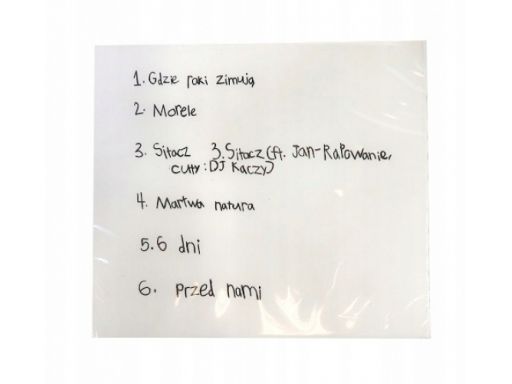 1. Gdzie raki zimują
2. Morele
3. Siłacz 3. Siłacz (ft. Jan-Rapowanie,
cuty: DJ Kaczy)
4. Martwa natura
5. 6 dni
6. przed nami